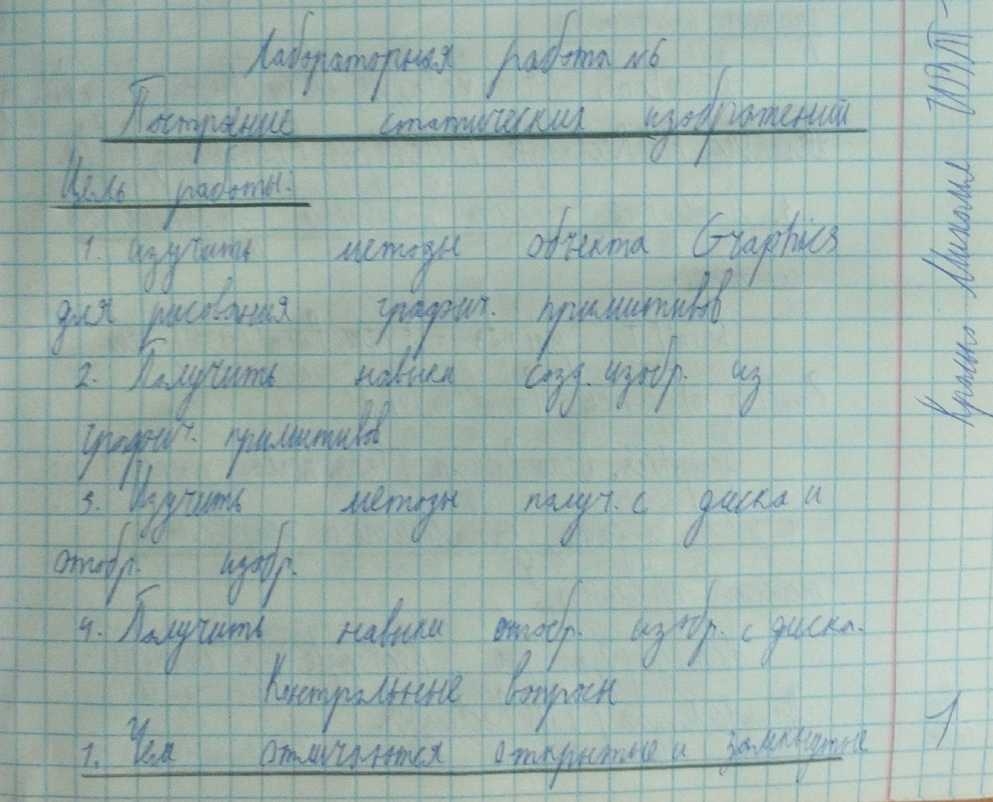 Лабораторная работа №6
Построение статических изображений
Цель работы.
1. Изучить методы объекта Graphics
для рисования графич. примитивов
2. Получить навыки созд. изобр. из
графич. примитивов
3. Изучить методы получ. с диска и
отобр. изобр.
4. Получить навыки отобр. изобр. с диска.
Контрольные вопросы
1. Чем отличаются открытые и замкнутые
1